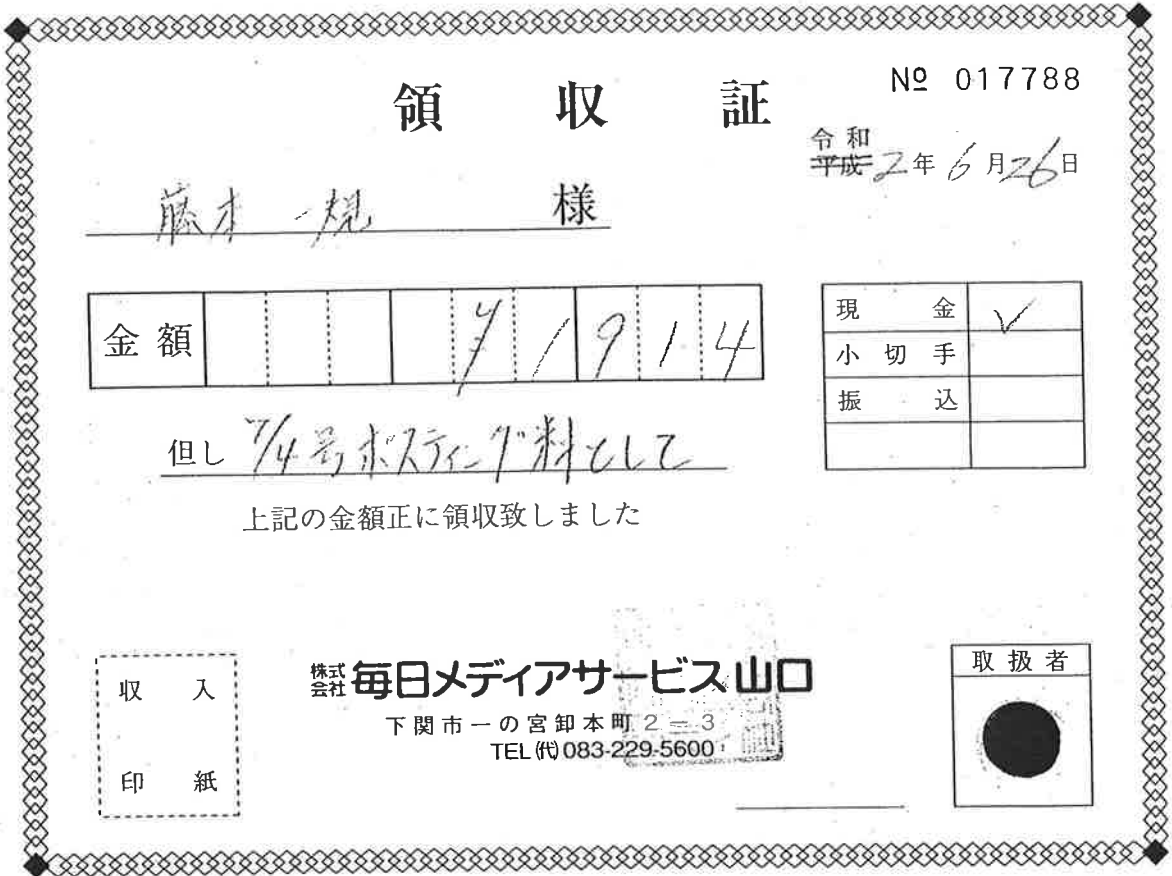 領収証
№ 017788
令和
平成 2年 6月 26日
藤本 一規 様
金額 ¥1914
現金 ✓
小切手
振込
但し 7/4号ポスティング料として
上記の金額正に領収致しました
収入
印紙
株式会社 毎日メディアサービス山口
下関市一の宮卸本町2-3
TEL(代)083-229-5600
取扱者